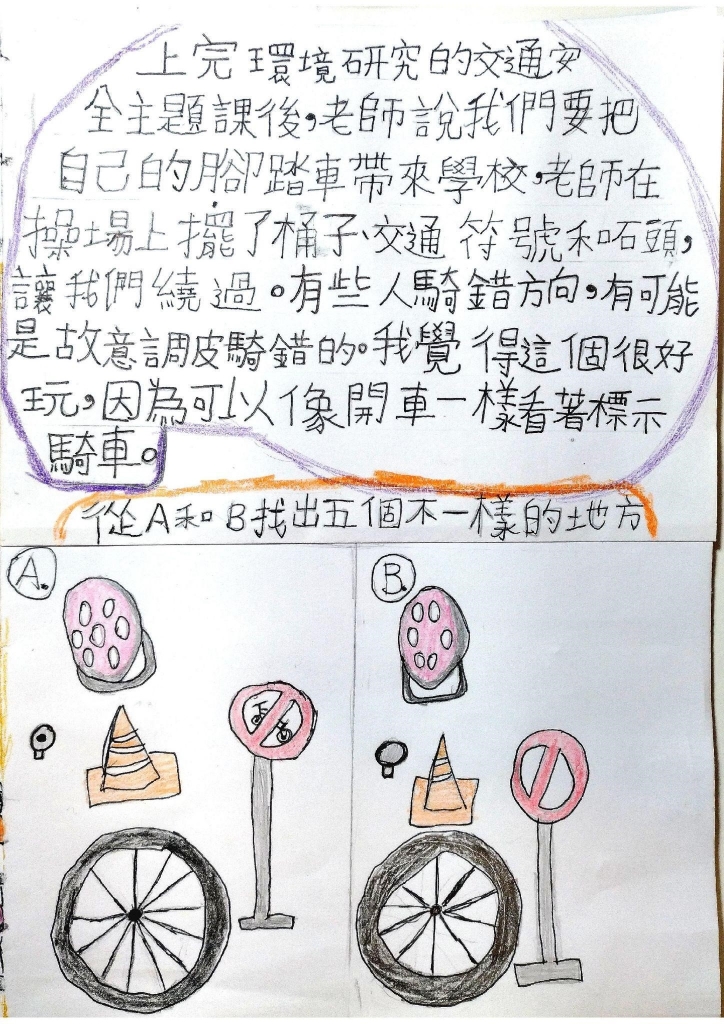 上完環境研究的交通安
全主題課後,老師說我們要把
自己的腳踏車帶來學校,老師在
操場上擺了桶子、交通符號和石頭,
讓我們繞過。有些人騎錯方向,有可能
是故意調皮騎錯的。我覺得這個很好
玩,因為可以像開車一樣看著標示
騎車。
從A和B找出五個不一樣的地方
A.
B.